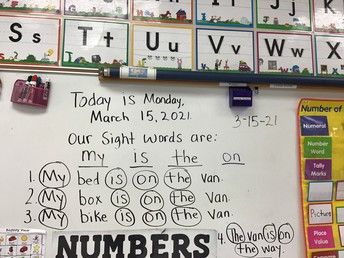 Ss Tt Uu Vv Ww Xx
Today is Monday,
March 15, 2021.
3-15-21
Our Sight words are:
my is the on
1. My bed is on the van.
2. My box is on the van.
3. My bike is on the van.
4. The van is on
the way.
NUMBERS
Number of
Numeral
Number
Word
Tally
Marks
Picture
Place
Value